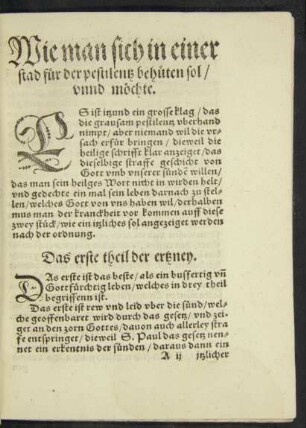 Wie man sich in einer
stad für der pestilentz behüten sol /
vnnd möchte.
ES ist itzund ein grosse klag / das
die grausam pestilentz vberhand
nimpt / aber niemand wil die vr-
sach erfür bringen / dieweil die
heilige schrifft klar anzeiget / das
dieselbige straffe geschicht von
Gott vmb vnserer sünde willen /
das man sein heilges Wort nicht in wirden helt /
vnd gedechte ein mal sein leben darnach zu stel-
len / welches Gott von vns haben wil / derhalben
mus man der kranckheit vor kommen auff diese
zwey stück / wie ein itzliches sol angezeiget werden
nach der ordnung.
Das erste theil der ertzney.
DAs erste ist das beste / als ein bussertig vñ
Gottfürchtig leben / welches in drey theil
begriffenn ist.
Das erste ist rew vnd leid vber die sünd / wel-
che geoffenbaret wird durch das gesetz / vnd zei-
get an den zorn Gottes / dauon auch allerley stra
fe entspringet / dieweil S. Paul das gesetz nen-
net ein erkentnis der sünden / daraus dann ein
A ij itzlicher